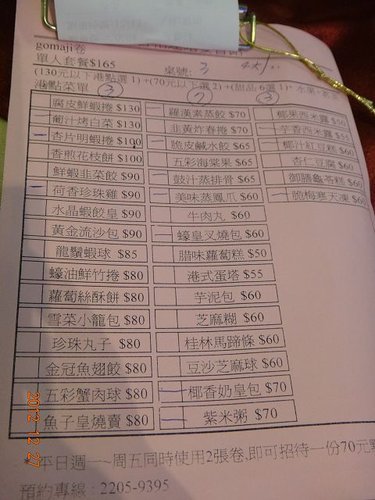 gomaji卷
單人套餐$165
桌號: 3
(130元以下港點選1)+(70元以下選2)+(甜品6選1)+水果
港點菜單 ③ ② ③
腐皮鮮蝦捲 $130 羅漢素蒸餃 $70 椰果西米露
葡汁烤白菜 $130 韭黃炸春捲 $70 芋香西米露
杏片明蝦捲 $100 脆皮鹹水餃 $65 椰汁紅豆糕 $60
香煎花枝餅 $100 五彩海棠果 $65 杏仁豆腐 $60
鮮蝦韭菜餃 $90 鼓汁蒸排骨 $65 御膳龜苓糕 $60
荷香珍珠雞 $90 美味蒸鳳爪 $60 脆梅寒天凍 $60
水晶蝦餃皇 $90 牛肉丸 $60
黃金流沙包 $90 蠔皇叉燒包 $60
龍鬚蝦球 $85 腊味蘿蔔糕 $50
蠔油鮮竹捲 $80 港式蛋塔 $55
蘿蔔絲酥餅 $80 芋泥包 $60
雪菜小籠包 $80 芝麻糊 $60
珍珠丸子 $80 桂林馬蹄條 $60
金冠魚翅餃 $80 豆沙芝麻球 $60
五彩蟹肉球 $80 椰香奶皇包 $70
魚子皇燒賣 $80 紫米粥 $70
*平日週一~周五同時使用2張卷,即可招待一份70元
預約專線: 2205-9395
2012 12 27